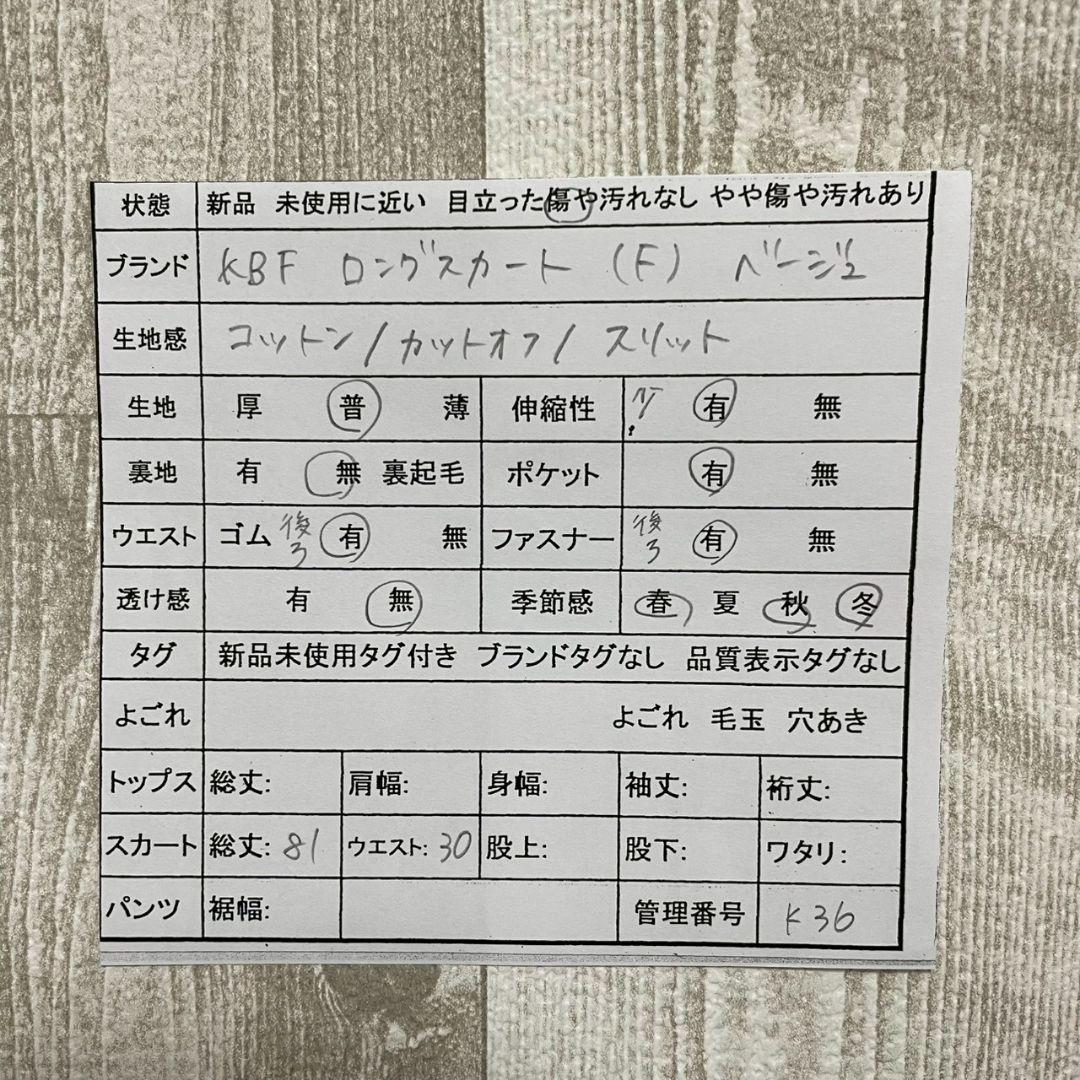 状態 新品 未使用に近い 目立った傷や汚れなし やや傷や汚れあり
ブランド KBF ロングスカート (F) ベージュ
生地感 コットン/カットオフ/スリット
生地 厚 普 薄 伸縮性 有 無
裏地 有 無 裏起毛 ポケット 有 無
ウエスト ゴム 後ろ 有 無 ファスナー 後ろ 有 無
透け感 有 無 季節感 春 夏 秋 冬
タグ 新品未使用タグ付き ブランドタグなし 品質表示タグなし
よごれ よごれ 毛玉 穴あき
トップス 総丈: 肩幅: 身幅: 袖丈: 裄丈:
スカート 総丈: 81 ウエスト: 30 股上: 股下: ワタリ:
パンツ 裾幅: 管理番号 K36